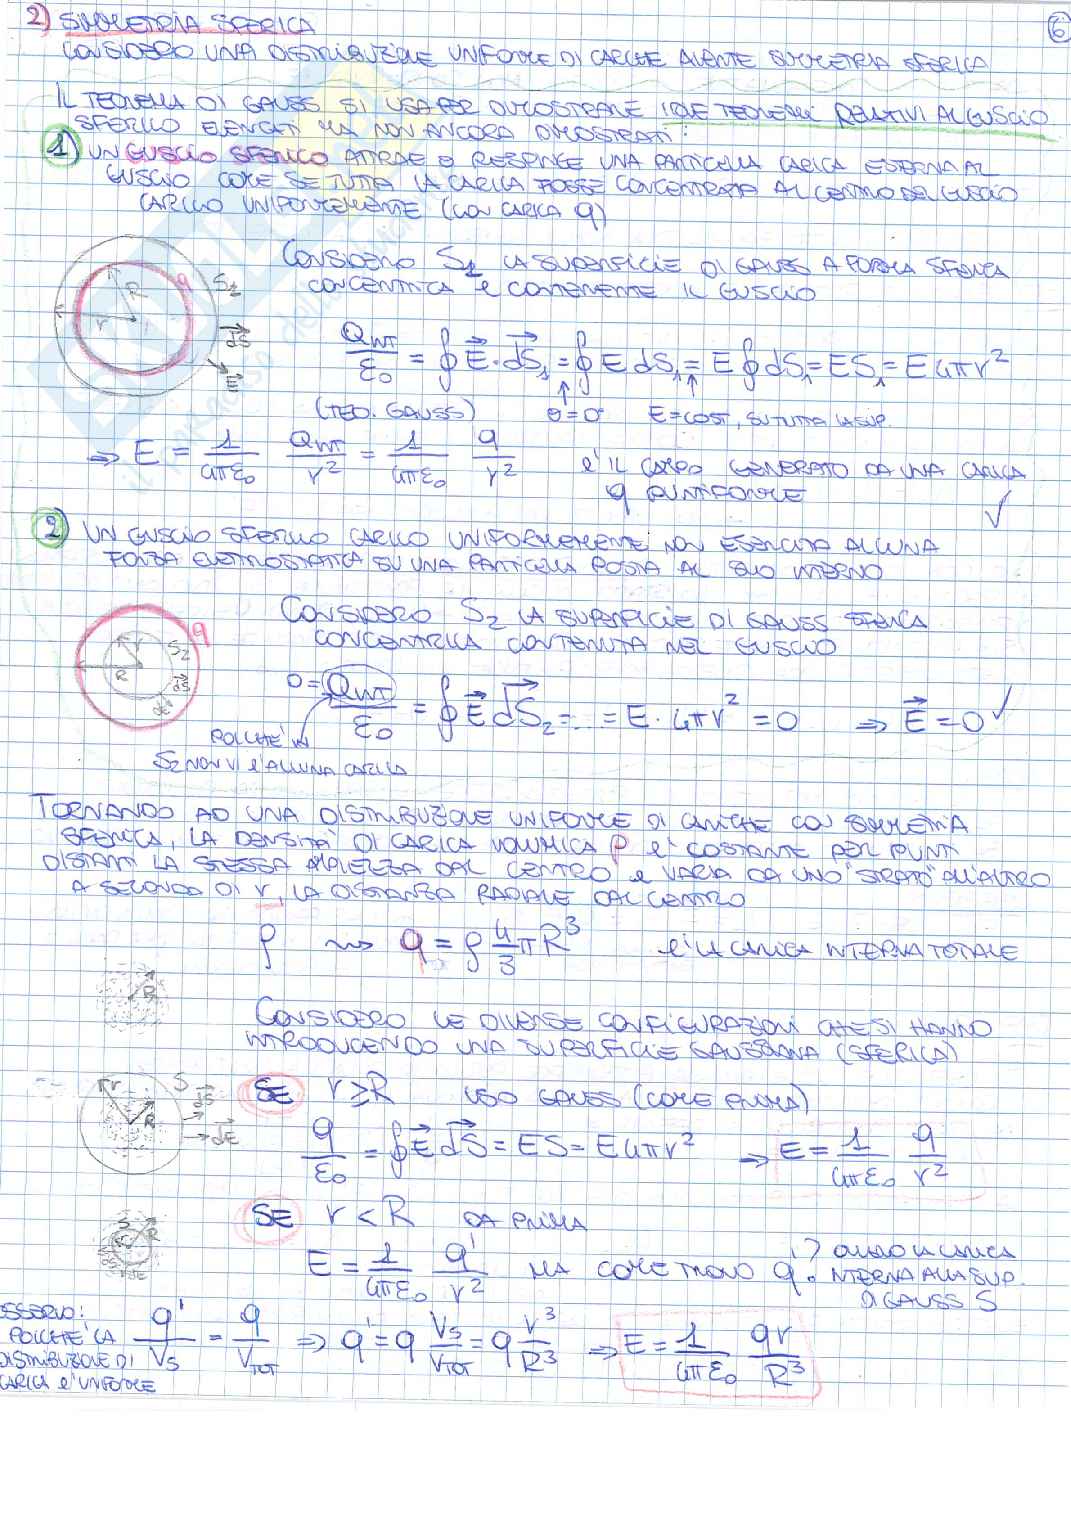 2) SIMMETRIA SFERICA
6
CONSIDERO UNA DISTRIBUZIONE UNIFORME DI CARICHE AVENTE SIMMETRIA SFERICA
IL TEOREMA DI GAUSS SI USA PER DIMOSTRARE I DUE TEOREMI RELATIVI AL GUSCIO
SFERICO ELENCATI MA NON ANCORA DIMOSTRATI:
1) UN GUSCIO SFERICO ATTRAE O RESPINGE UNA PARTICELLA CARICA ESTERNA AL
GUSCIO COME SE TUTTA LA CARICA FOSSE CONCENTRATA AL CENTRO DEL GUSCIO
CARICO UNIFORMEMENTE (CON CARICA q)
R r q S₁ dS⃗ E⃗
CONSIDERO S₁ LA SUPERFICIE DI GAUSS A FORMA SFERICA
CONCENTRICA E CONTENENTE IL GUSCIO
Q_INT/ε₀ = ∮ E⃗ · dS⃗₁ = ∮ E dS₁ = E ∮ dS₁ = E S₁ = E 4πr²
(TEO. GAUSS) θ=0° E=COST, SU TUTTA LA SUP.
⇒ E = 1/4πε₀ Q_INT/r² = 1/4πε₀ q/r² E' IL CAMPO GENERATO DA UNA CARICA
q PUNTIFORME ✓
2) UN GUSCIO SFERICO CARICO UNIFORMEMENTE NON ESERCITA ALCUNA
FORZA ELETTROSTATICA SU UNA PARTICELLA POSTA AL SUO INTERNO
q r R S₂ dS⃗ dE⃗
CONSIDERO S₂ LA SUPERFICIE DI GAUSS SFERICA
CONCENTRICA CONTENUTA NEL GUSCIO
0 = Q_INT/ε₀ = ∮ E⃗ dS⃗₂ = ... = E · 4πr² = 0 ⇒ E⃗ = 0 ✓
POICHE' IN
S₂ NON VI E' ALCUNA CARICA
TORNANDO AD UNA DISTRIBUZIONE UNIFORME DI CARICHE CON SIMMETRIA
SFERICA, LA DENSITA' DI CARICA VOLUMICA ρ E' COSTANTE PER PUNTI
DISTANTI LA STESSA AMPIEZZA DAL CENTRO E VARIA DA UNO "STRATO" ALL'ALTRO
A SECONDA DI r, LA DISTANZA RADIALE DAL CENTRO
ρ ⇝ q = ρ 4/3 πR³ E' LA CARICA INTERNA TOTALE
R
CONSIDERO LE DIVERSE CONFIGURAZIONI CHE SI HANNO
INTRODUCENDO UNA SUPERFICIE GAUSSIANA (SFERICA)
r S R dS⃗ dE⃗
SE r ≥ R USO GAUSS (COME PRIMA)
q/ε₀ = ∮ E⃗ dS⃗ = ES = E4πr² ⇒ E = 1/4πε₀ q/r²
SE r < R DA PRIMA
S R r dS dE
E = 1/4πε₀ q'/r² MA COME TROVO q'? OVVERO LA CARICA
INTERNA ALLA SUP.
DI GAUSS S
OSSERVO:
POICHE' LA
DISTRIBUZIONE DI
CARICA E' UNIFORME
q'/V_S = q/V_TOT ⇒ q' = q V_S/V_TOT = q r³/R³ ⇒ E = 1/4πε₀ qr/R³